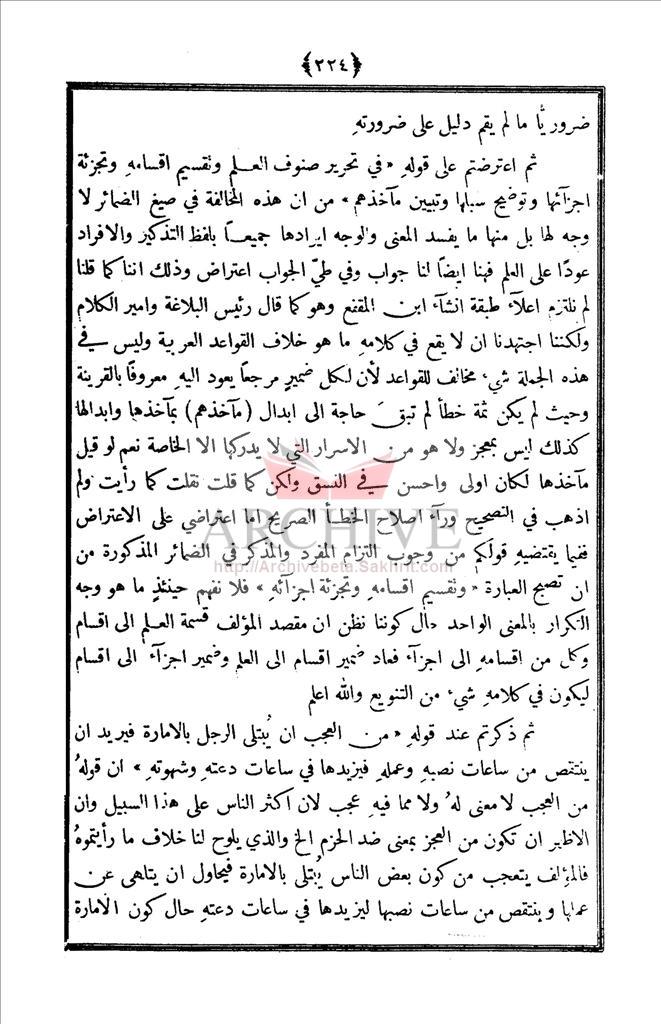 ﴿٢٢٤﴾
ضروريًّا ما لم يقم دليل على ضرورتهِ
ثم اعترضتم على قولهِ « في تحرير صنوف العلم ونقسيم اقسامهِ وتجزئة
اجزآئها وتوضيح سبلها وتبيين مآخذهم » من ان هذه المخالفة في صيغ الضمائر لا
وجه لها بل منها ما يفسد المعنى والوجه ايرادها جميعـًا بلفظ التذكير والافراد
عودًا على العلم فهنا ايضًا لنا جواب وفي طيّ الجواب اعتراض وذلك اننا كما قلنا
لم نلتزم اعلآء طبقة انشآء ابن المقفع وهو كما قال رئيس البلاغة وامير الكلام
ولكننا اجتهدنا ان لا يقع في كلامهِ ما هو خلاف القواعد العربية وليس في
هذه الجملة شيء مخالف للقواعد لأن لكل ضميرٍ مرجعاً يعود اليهِ معروفًا بالقرينة
وحيث لم يكن ثمة خطأ لم تبقَ حاجة الى ابدال (مآخذهم) بمآخذها وابدالها
كذلك ليس بمعجز ولا هو من الاسرار التي لا يدركها الا الخاصة نعم لو قيل
مآخذها لكان اولى واحسن في النسق ولكن كما قلت نقلت كما رأيت ولم
اذهب في التصحيح ورآء اصلاح الخطأ الصريح اما اعتراضي على الاعتراض
ففيما يقتضيهِ قولكم من وجوب التزام المفرد والمذكر في الضمائر المذكورة من
ان تصبح العبارة « ونقسيم اقسامهِ وتجزئة اجزآئهِ » فلا نفهم حينئذٍ ما هو وجه
التكرار بالمعنى الواحد حال كوننا نظن ان مقصد المؤلف قسمة العلم الى اقسام
وكل من اقسامهِ الى اجزآء فعاد ضمير اقسام الى العلم وضمير اجزآء الى اقسام
ليكون في كلامهِ شيء من التنويع والله اعلم
ثم ذكرتم عند قولهِ « من العجب ان يُبتلى الرجل بالامارة فيريد ان
ينتقص من ساعات نصبهِ وعملهِ فيزيدها في ساعات دعتهِ وشهوتهِ » ان قولهُ
من العجب لا معنى لهُ ولا مما فيهِ عجب لان اكثر الناس على هذا السبيل وان
الاظهر ان تكون من العجز بمعنى ضد الحزم الخ والذي يلوح لنا خلاف ما رأيتموهُ
فالمؤلف يتعجب من كون بعض الناس يُبتلى بالامارة فيحاول ان يتلهى عن
عملها وينتقص من ساعات نصبها ليزيدها في ساعات دعتهِ حال كون الامارة
ARCHIVE
http://Archivebeta.Sakhrit.com